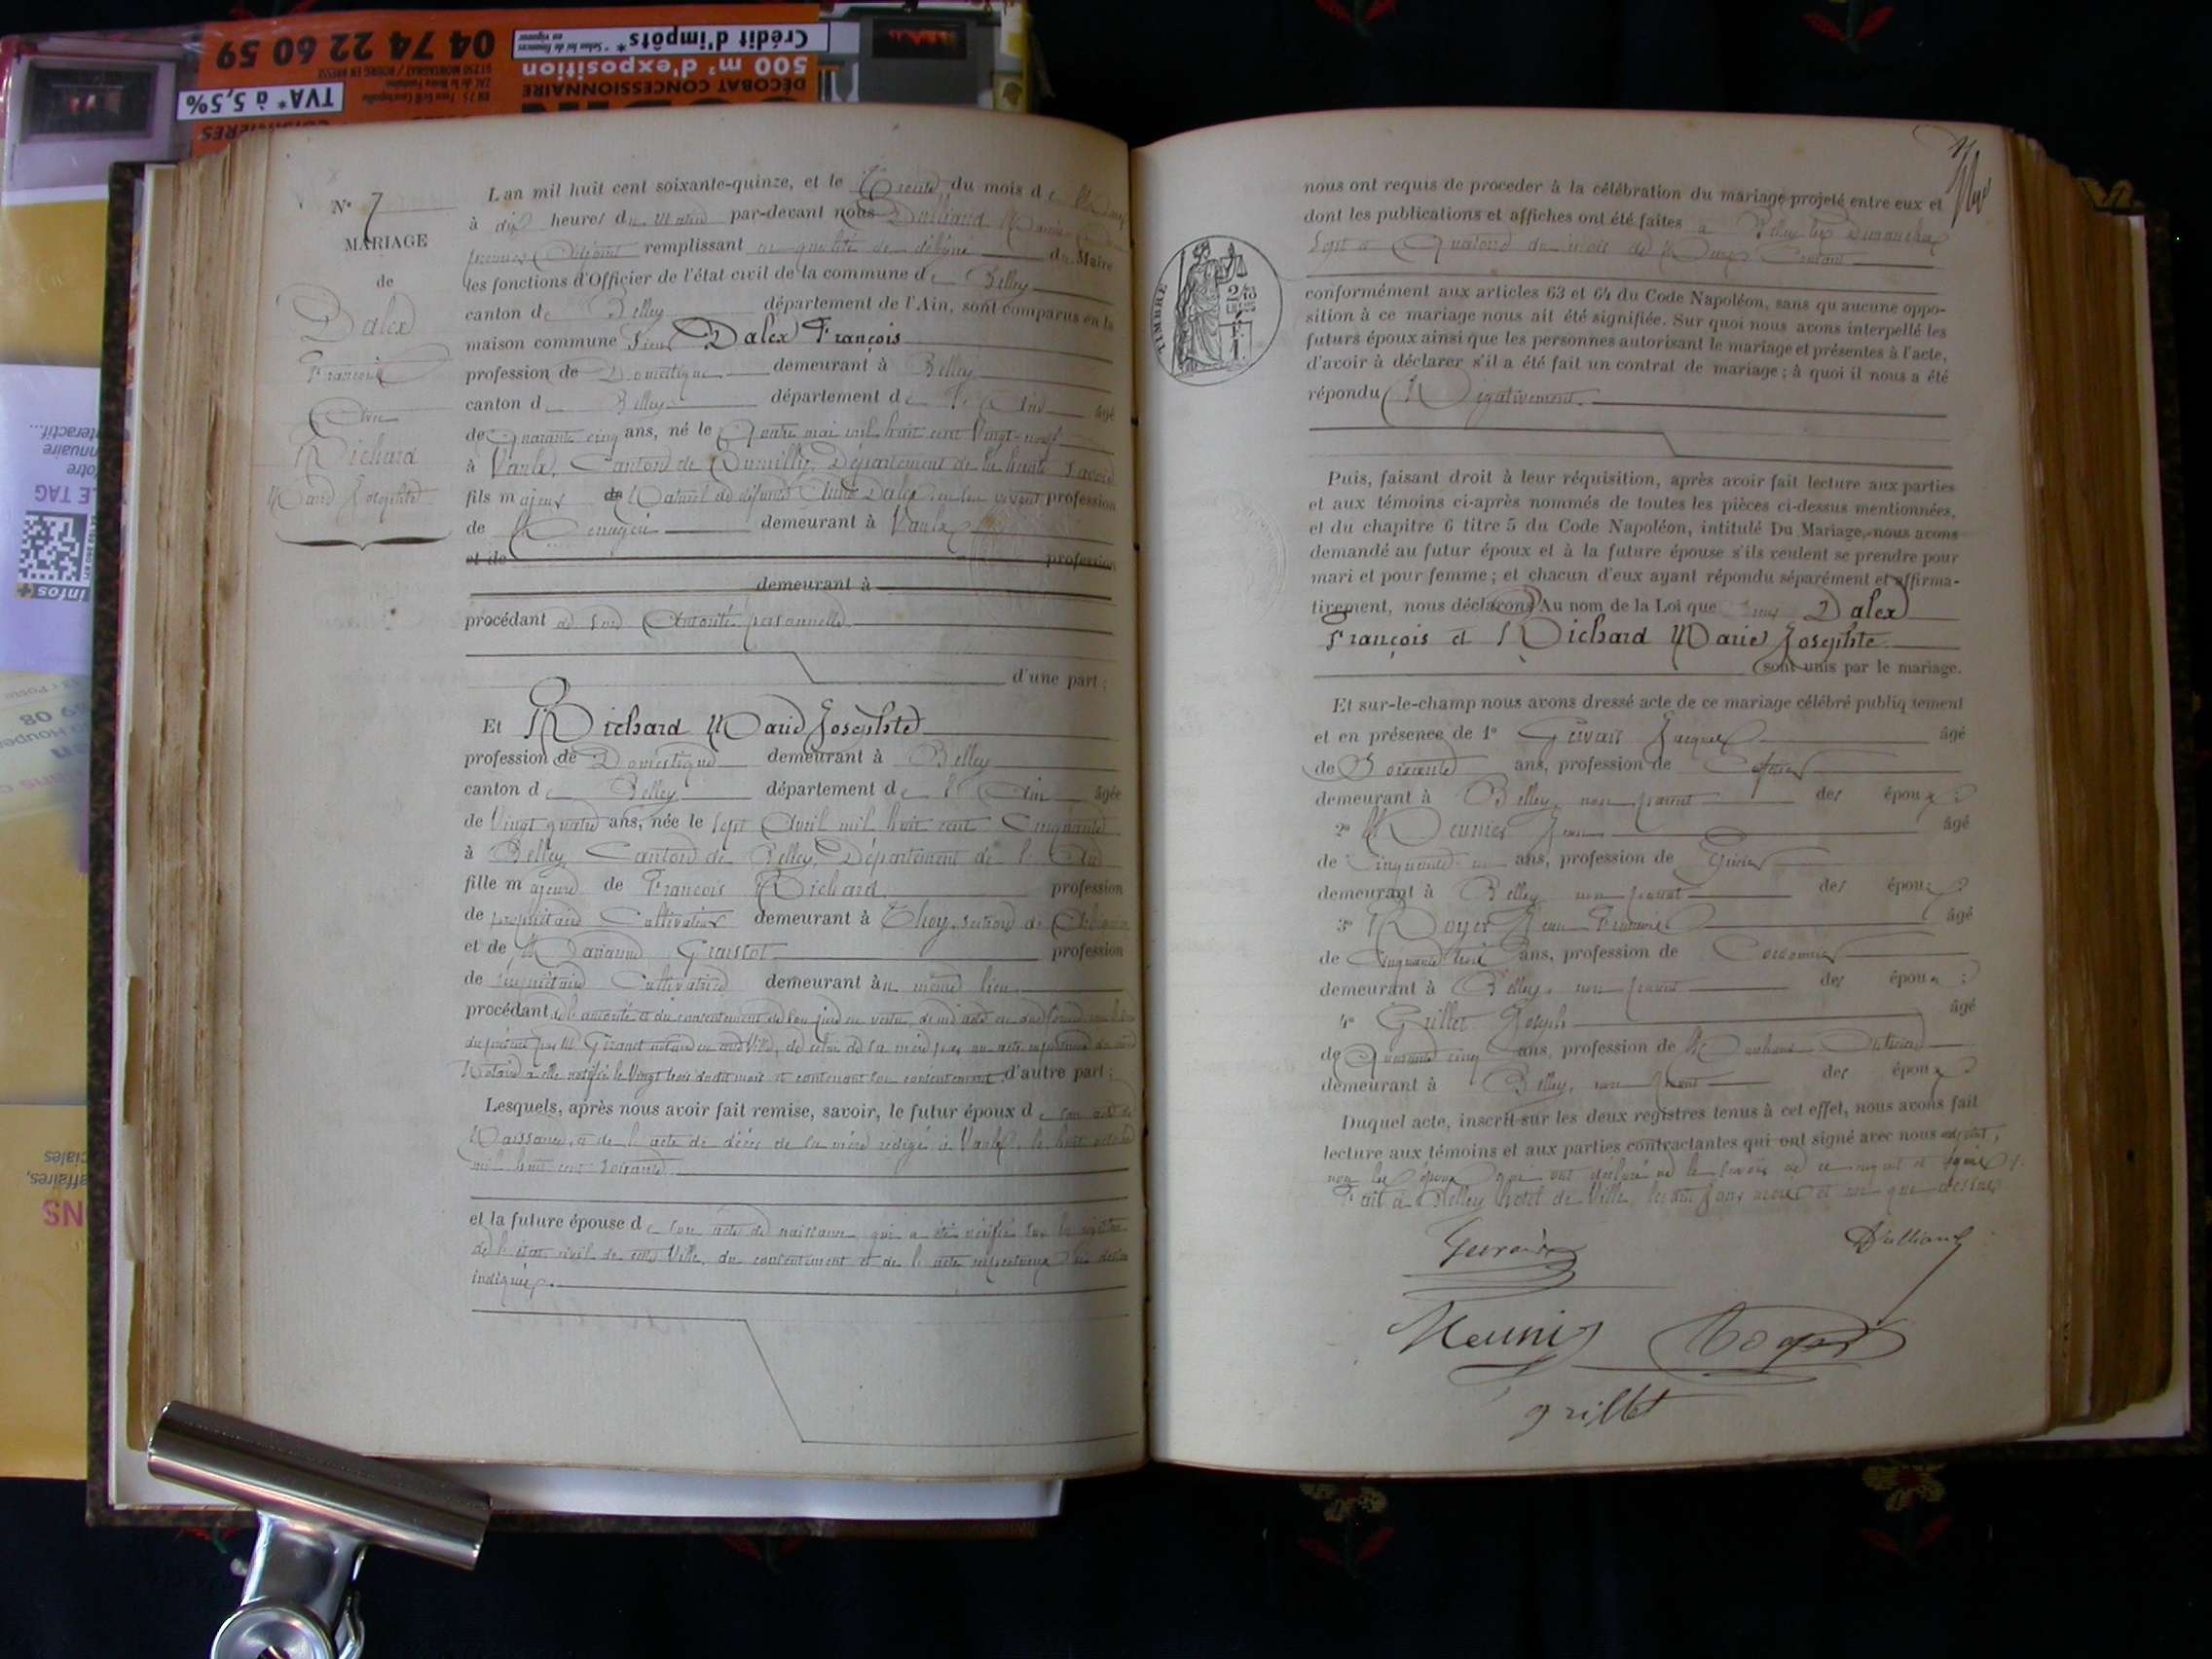 04 74 22 60 59
Crédit d'impôts*
* Selon loi de finances
en vigueur
500 m² d'exposition
DÉCOBAT CONCESSIONNAIRE
TVA* à 5,5%
infos+
LE TAG
N° 7
MARIAGE
de
Dalex
François
Avec
Richard
Marie Josephte
L'an mil huit cent soixante-quinze, et le Trente du mois de Mars
à dix heures du matin par-devant nous
premier Adjoint remplissant en qualité de délégué du Maire
les fonctions d'Officier de l'état civil de la commune de Belley
canton de Belley département de l'Ain, sont comparus en la
maison commune Sieur Dalex François
profession de Domestique demeurant à Belley
canton d Belley département de l'Ain âgé
de Quarante cinq ans, né le Quatre mai mil huit cent Vingt-neuf
à Vaulx, Canton de Rumilly, Département de la haute Savoie
fils majeur de Naturel de défunte Dalex en son vivant profession
de Ménagère demeurant à Vaulx
et de profession
demeurant à
procédant de son Autorité personnelle
d'une part ;
Et Richard Marie Josephte
profession de Domestique demeurant à Belley
canton de Belley département de l'Ain âgée
de Vingt quatre ans, née le Sept Avril mil huit cent Cinquante
à Belley, Canton de Belley, Département de l'Ain
fille majeure de François Richard profession
de propriétaire Cultivateur demeurant à Thoy, section de
et de Marianne profession
de propriétaire Cultivatrice demeurant au même lieu.
procédant de l'autorité et du consentement de son père en vertu
notaire en cette Ville, de celui de sa mère par un acte respectueux
Notaire à elle notifié le Vingt trois dudit mois et contenant son consentement d'autre part ;
Lesquels, après nous avoir fait remise, savoir, le futur époux de son acte de
Naissance, et de l'acte de décès de sa mère rédigé à Vaulx, le huit
mil huit cent soixante
et la future épouse de son acte de naissance, qui a été vérifié sur les registres
de l'état civil de cette Ville, du consentement et de l'acte respectueux
indiqués.
nous ont requis de procéder à la célébration du mariage projeté entre eux et
dont les publications et affiches ont été faites à Belley les Dimanches
Sept et Quatorze du mois de Mars Courant
TIMBRE
conformément aux articles 63 et 64 du Code Napoléon, sans qu'aucune oppo-
sition à ce mariage nous ait été signifiée. Sur quoi nous avons interpellé les
futurs époux ainsi que les personnes autorisant le mariage et présentes à l'acte,
d'avoir à déclarer s'il a été fait un contrat de mariage ; à quoi il nous a été
répondu Négativement.
Puis, faisant droit à leur réquisition, après avoir fait lecture aux parties
et aux témoins ci-après nommés de toutes les pièces ci-dessus mentionnées,
et du chapitre 6 titre 5 du Code Napoléon, intitulé Du Mariage, nous avons
demandé au futur époux et à la future épouse s'ils veulent se prendre pour
mari et pour femme ; et chacun d'eux ayant répondu séparément et affirma-
tivement, nous déclarons Au nom de la Loi que Dalex
François et Richard Marie Josephte
sont unis par le mariage.
Et sur-le-champ nous avons dressé acte de ce mariage célébré publiquement
et en présence de 1° Jacques âgé
de Soixante ans, profession de
demeurant à Belley, non parent des époux ;
2° Meunier Jean âgé
de Cinquante ans, profession de
demeurant à Belley non parent des époux
3° Royer Jean François âgé
de Cinquante trois ans, profession de Cordonnier
demeurant à Belley, non parent des époux ;
4° Grillet Joseph âgé
de Quarante cinq ans, profession de
demeurant à Belley, non parent des époux
Duquel acte, inscrit sur les deux registres tenus à cet effet, nous avons fait
lecture aux témoins et aux parties contractantes qui ont signé avec nous
non les époux qui ont déclaré ne le savoir de ce requis et
Fait à Belley hôtel de Ville, les an, jour, mois et que dessus
Meunier
Royer
grillet